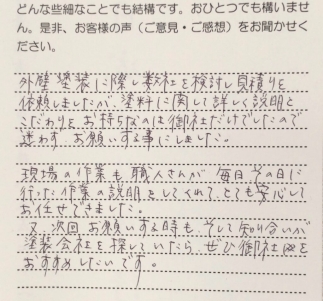 どんな些細なことでも結構です。おひとつでも構いませ
ん。是非、お客様の声（ご意見・ご感想）をお聞かせく
ださい。
外壁塗装に際し数社を検討し見積りを
依頼しましたが、塗料に関して詳しく説明と
こだわりをお持ちなのは御社だけでしたので
迷わずお願いする事にしました。
現場の作業も職人さんが毎日その日に
行った作業の説明をしてくれてとても安心して
お任せできました。
又、次回お願いする時も、そして知り合いが
塗装会社を探していたら、ぜひ御社を
おすすめしたいです。